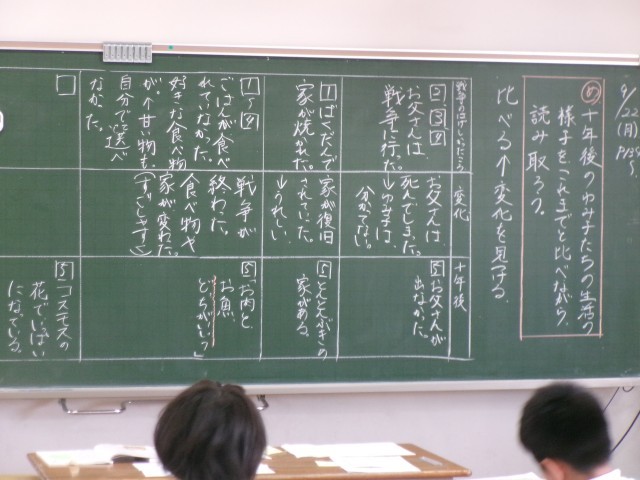 9/22(月) P.125〜
め 十年後のゆみ子たちの生活の
様子をこれまでと比べながら、
読み取ろう。
比べる↑変化を見つける。
戦争のはげしいころ
変化
十年後
2 3 9
お父さんは、
戦争に行った。
お父さんは、
死んでしまった。
→ゆみ子は
分かってない。
5 お父さんが
出なかった。
1 ばくだんで
家が焼かれた。
家が復旧
されていた。
↓うれしい
5 とんとんぶきの
家がある。
1〜9
ごはんが食べ
れてなかった。
好きな食べ物
が、甘い物も、
自分で選べ
なかった。
戦争が
終わった。
食べ物や
家が変わた。
(すごしやすさ)
5 「お肉と
お魚、
どちらがいい?」
5 コスモスの
花でいっぱい
になっている。